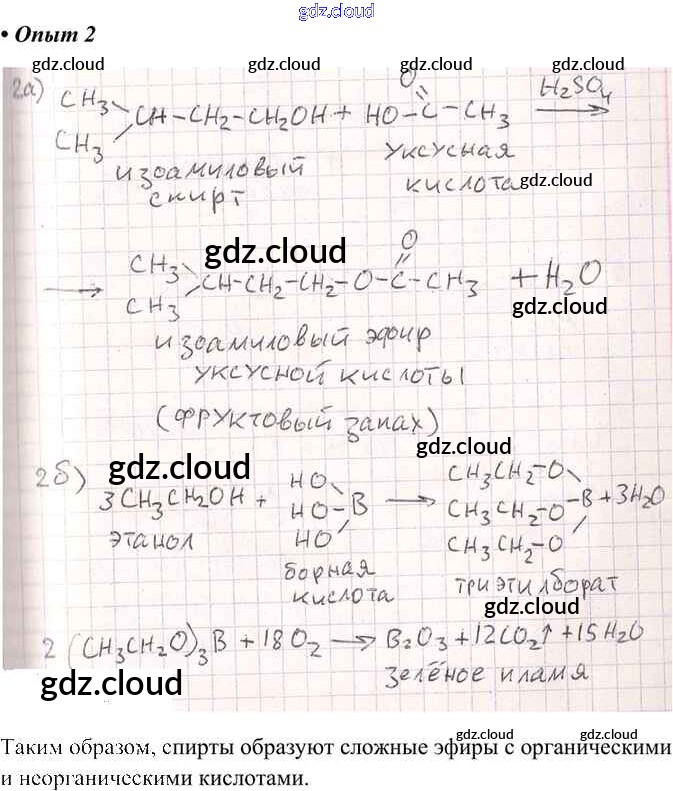 gdz.cloud
• Опыт 2
gdz.cloud gdz.cloud gdz.cloud
2а) CH3 CH3 CH–CH2–CH2OH + HO–C(=O)–CH3 H2SO4 →
изоамиловый спирт
уксусная кислота
gdz.cloud
gdz.cloud gdz.cloud
→ CH3 CH3 CH–CH2–CH2–O–C(=O)–CH3 + H2O
gdz.cloud
изоамиловый эфир
уксусной кислоты
(фруктовый запах)
gdz.cloud gdz.cloud
2б) 3CH3CH2OH + HO HO HO B → CH3CH2–O CH3CH2–O CH3CH2–O B + 3H2O
gdz.cloud
этанол
борная кислота
триэтилборат
gdz.cloud
2(CH3CH2O)3B + 18O2 → B2O3 + 12CO2↑ + 15H2O
зелёное пламя
gdz.cloud
gdz.cloud gdz.cloud
Таким образом, спирты образуют сложные эфиры с органическими
и неорганическими кислотами.
gdz.cloud